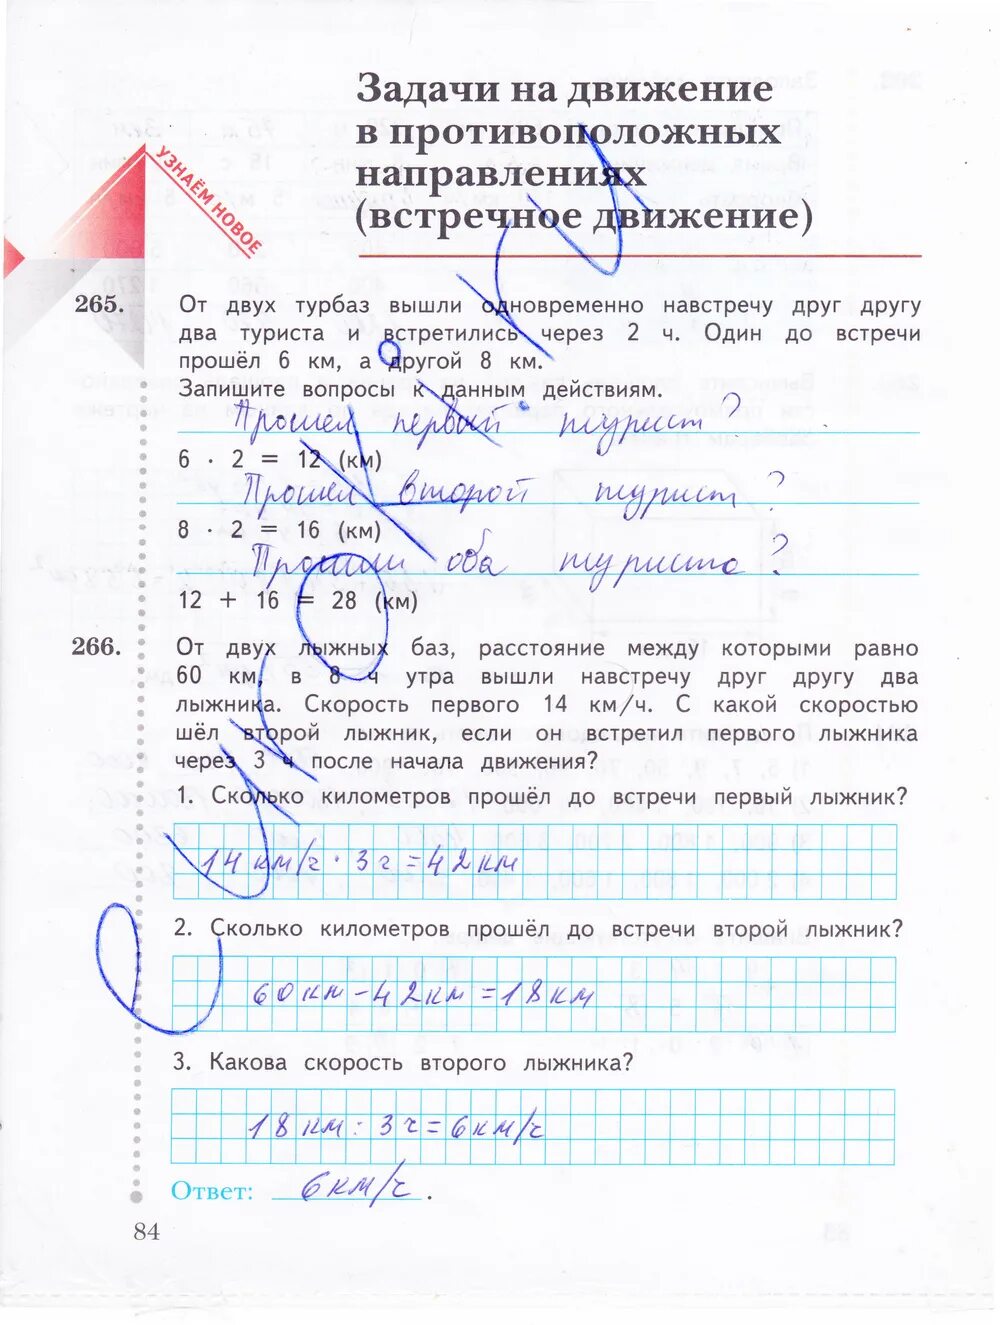 Задачи на движение
в противоположных
направлениях
(встречное движение)
УЗНАЁМ НОВОЕ
265. От двух турбаз вышли одновременно навстречу друг другу
два туриста и встретились через 2 ч. Один до встречи
прошёл 6 км, а другой 8 км.
Запишите вопросы к данным действиям.
Прошел первый турист?
6 · 2 = 12 (км)
Прошел второй турист?
8 · 2 = 16 (км)
Прошли оба туриста?
12 + 16 = 28 (км)
266. От двух лыжных баз, расстояние между которыми равно
60 км, в 8 ч утра вышли навстречу друг другу два
лыжника. Скорость первого 14 км/ч. С какой скоростью
шёл второй лыжник, если он встретил первого лыжника
через 3 ч после начала движения?
1. Сколько километров прошёл до встречи первый лыжник?
14 км/ч · 3 ч = 42 км
2. Сколько километров прошёл до встречи второй лыжник?
60 км - 42 км = 18 км
3. Какова скорость второго лыжника?
18 км : 3 ч = 6 км/ч
Ответ: 6 км/ч.
84